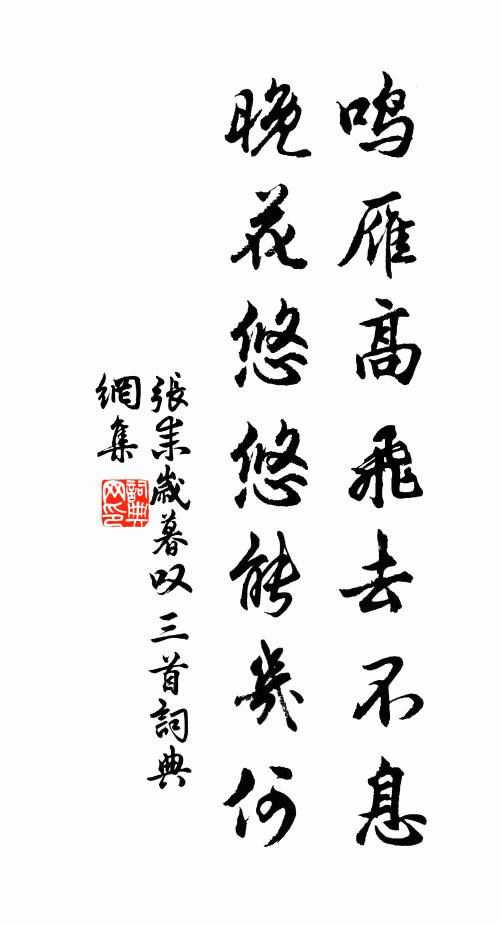 鸣雁高飛去不息
晚花悠悠能幾何
張耒歲暮叹三首詞典
網集
詞典
网印